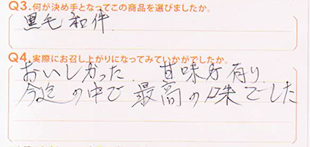 Q3.何が決め手となってこの商品を選びましたか。
黒毛和件
Q4.実際にお召し上がりになってみていかがでしたか。
おいしかった 甘味が有り
今迄の中で最高の味でした